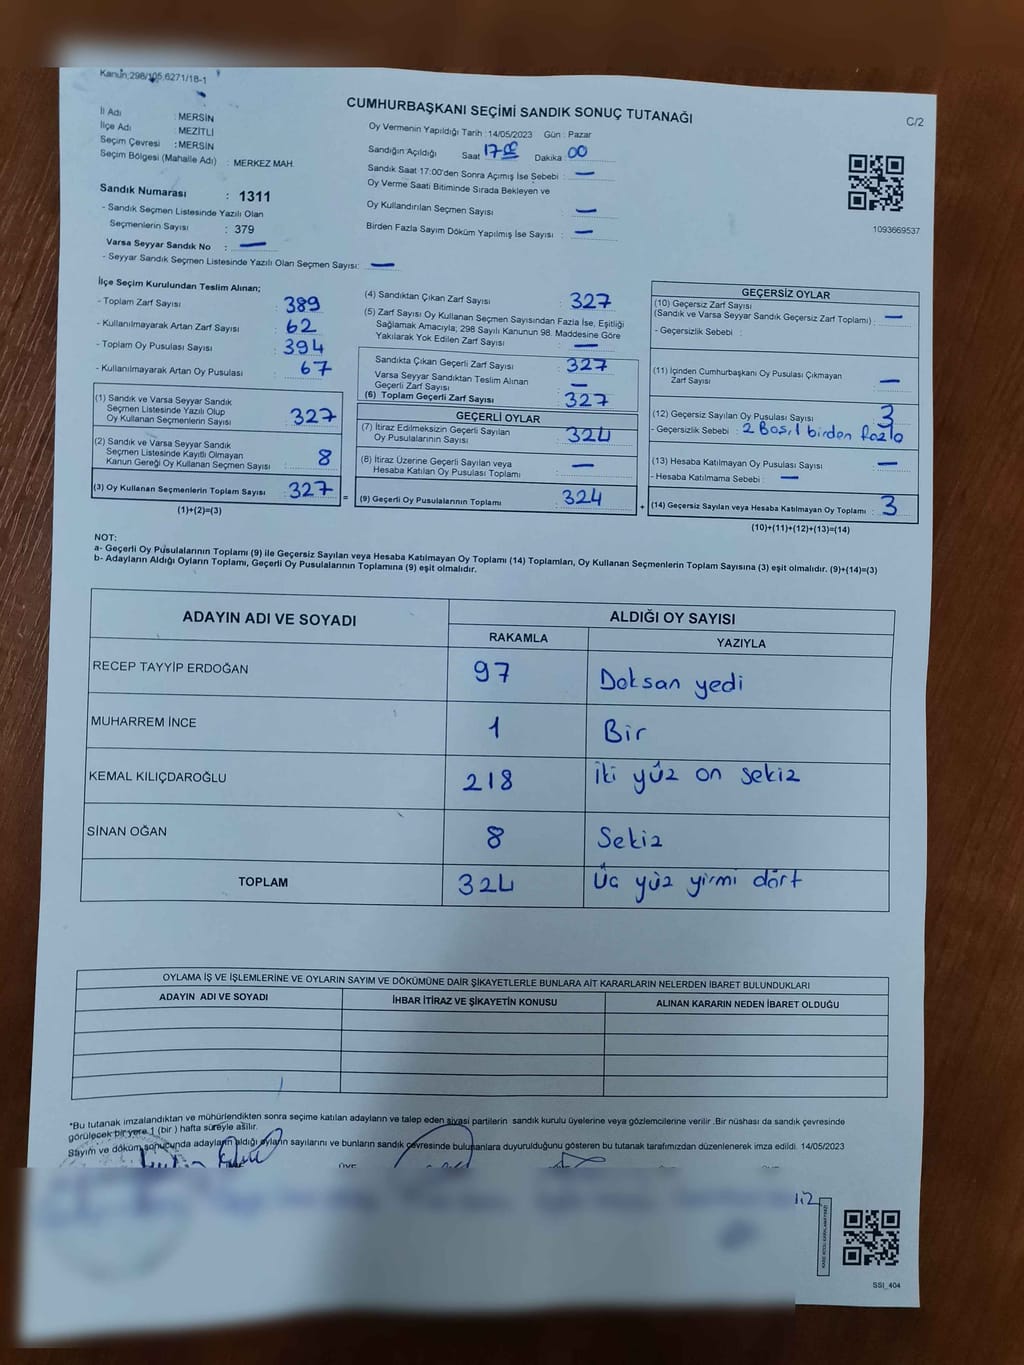 Kanun;298/105;6271/18-1
CUMHURBAŞKANI SEÇİMİ SANDIK SONUÇ TUTANAĞI
C/2
İl Adı : MERSİN
İlçe Adı : MEZİTLİ
Seçim Çevresi : MERSİN
Seçim Bölgesi (Mahalle Adı) : MERKEZ MAH.
Oy Vermenin Yapıldığı Tarih :14/05/2023 Gün : Pazar
Sandığın Açıldığı Saat 17:00 Dakika 00
Sandık Saat 17:00'den Sonra Açımış İse Sebebi : —
Oy Verme Saati Bitiminde Sırada Bekleyen ve
Oy Kullandırılan Seçmen Sayısı : —
Birden Fazla Sayım Döküm Yapılmış İse Sayısı : —
1093669537
Sandık Numarası : 1311
- Sandık Seçmen Listesinde Yazılı Olan
Seçmenlerin Sayısı : 379
Varsa Seyyar Sandık No : —
- Seyyar Sandık Seçmen Listesinde Yazılı Olan Seçmen Sayısı: —
İlçe Seçim Kurulundan Teslim Alınan;
- Toplam Zarf Sayısı : 389
- Kullanılmayarak Artan Zarf Sayısı : 62
- Toplam Oy Pusulası Sayısı : 394
- Kullanılmayarak Artan Oy Pusulası : 67
(1) Sandık ve Varsa Seyyar Sandık
Seçmen Listesinde Yazılı Olup
Oy Kullanan Seçmenlerin Sayısı : 327
(2) Sandık ve Varsa Seyyar Sandık
Seçmen Listesinde Kayıtlı Olmayan
Kanun Gereği Oy Kullanan Seçmen Sayısı : 8
(3) Oy Kullanan Seçmenlerin Toplam Sayısı : 327
(1)+(2)=(3)
=
(4) Sandıktan Çıkan Zarf Sayısı : 327
(5) Zarf Sayısı Oy Kullanan Seçmen Sayısından Fazla İse, Eşitliği
Sağlamak Amacıyla; 298 Sayılı Kanunun 98. Maddesine Göre
Yakılarak Yok Edilen Zarf Sayısı : —
Sandıkta Çıkan Geçerli Zarf Sayısı : 327
Varsa Seyyar Sandıktan Teslim Alınan
Geçerli Zarf Sayısı : —
(6) Toplam Geçerli Zarf Sayısı : 327
GEÇERLİ OYLAR
(7) İtiraz Edilmeksizin Geçerli Sayılan
Oy Pusulalarının Sayısı : 324
(8) İtiraz Üzerine Geçerli Sayılan veya
Hesaba Katılan Oy Pusulası Toplamı : —
(9) Geçerli Oy Pusulalarının Toplamı : 324
+
GEÇERSİZ OYLAR
(10) Geçersiz Zarf Sayısı
(Sandık ve Varsa Seyyar Sandık Geçersiz Zarf Toplamı) : —
- Geçersizlik Sebebi :
(11) İçinden Cumhurbaşkanı Oy Pusulası Çıkmayan
Zarf Sayısı : —
(12) Geçersiz Sayılan Oy Pusulası Sayısı : 3
- Geçersizlik Sebebi : 2 Bos, 1 birden fazla
(13) Hesaba Katılmayan Oy Pusulası Sayısı : —
- Hesaba Katılmama Sebebi : —
(14) Geçersiz Sayılan veya Hesaba Katılmayan Oy Toplamı : 3
(10)+(11)+(12)+(13)=(14)
NOT:
a- Geçerli Oy Pusulalarının Toplamı (9) ile Geçersiz Sayılan veya Hesaba Katılmayan Oy Toplamı (14) Toplamları, Oy Kullanan Seçmenlerin Toplam Sayısına (3) eşit olmalıdır. (9)+(14)=(3)
b- Adayların Aldığı Oyların Toplamı, Geçerli Oy Pusulalarının Toplamına (9) eşit olmalıdır.
ADAYIN ADI VE SOYADI ALDIĞI OY SAYISI
RAKAMLA YAZIYLA
RECEP TAYYİP ERDOĞAN 97 Doksan yedi
MUHARREM İNCE 1 Bir
KEMAL KILIÇDAROĞLU 218 iki yüz on sekiz
SİNAN OĞAN 8 Sekiz
TOPLAM 324 Üc yüz yirmi dört
OYLAMA İŞ VE İŞLEMLERİNE VE OYLARIN SAYIM VE DÖKÜMÜNE DAİR ŞİKAYETLERLE BUNLARA AİT KARARLARIN NELERDEN İBARET BULUNDUKLARI
ADAYIN ADI VE SOYADI İHBAR İTİRAZ VE ŞİKAYETİN KONUSU ALINAN KARARIN NEDEN İBARET OLDUĞU
*Bu tutanak imzalandıktan ve mühürlendikten sonra seçime katılan adayların ve talep eden siyasi partilerin sandık kurulu üyelerine veya gözlemcilerine verilir .Bir nüshası da sandık çevresinde
görülecek bir yere 1 (bir ) hafta süreyle asılır.
Sayım ve döküm sonucunda adayların aldığı oyların sayılarını ve bunların sandık çevresinde bulunanlara duyurulduğunu gösteren bu tutanak tarafımızdan düzenlenerek imza edildi. 14/05/2023
SSI_404